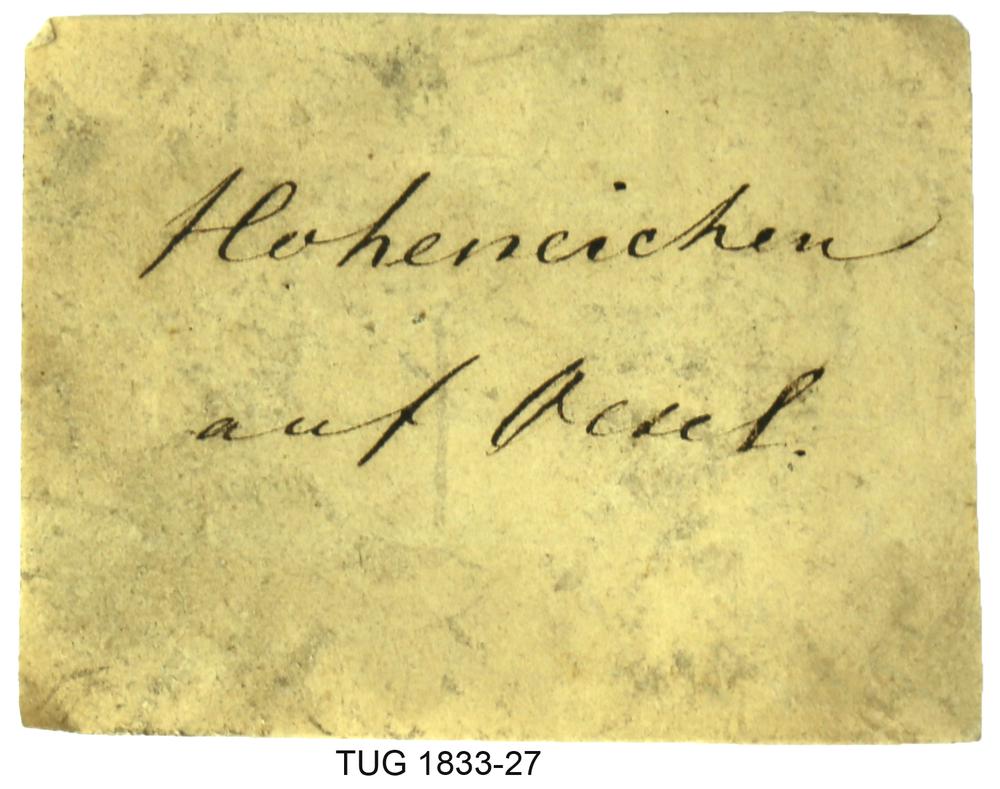 Hoheneichen
auf Oesel.
TUG 1833-27